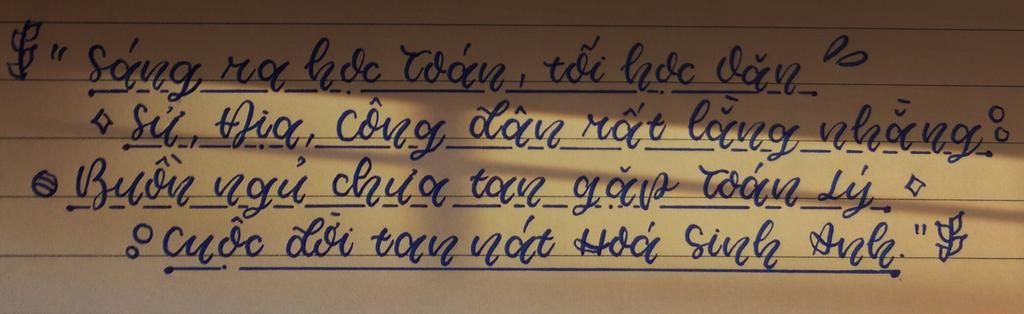 "Sáng ra học Toán, tối học Văn
Sử, Địa, Công dân rất lằng nhằng
Buồn ngủ chưa tan gặp Toán Lý
Cuộc đời tan nát Hoá Sinh Anh."